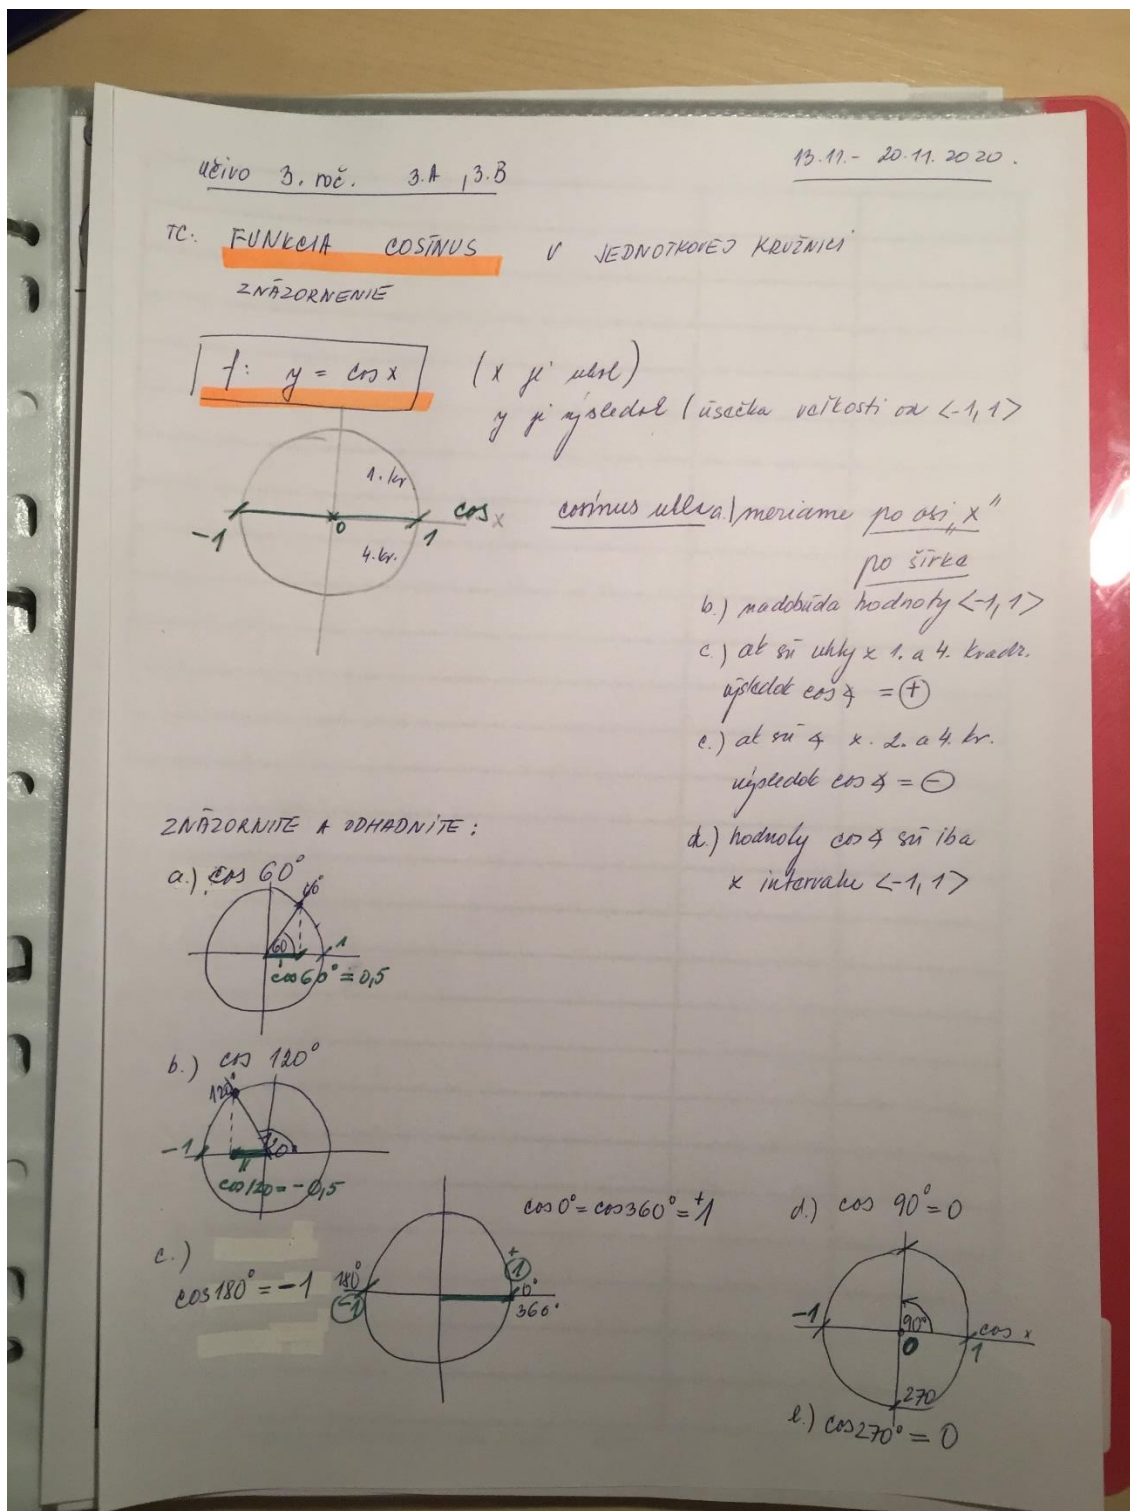 učivo 3. roč. 3.A, 3.B
13.11.- 20.11.2020.
TC: FUNKCIA COSÍNUS V JEDNOTKOVEJ KRUŽNICI
ZNÁZORNENIE
f: y = cos x (x je uhol)
y je výsledok (úsečka veľkosti od <-1,1>
1. kr.
-1 0 1 cos x
4. kr.
cosínus uhla a.) meriame po osi "x"
po šírke
b.) nadobúda hodnoty <-1,1>
c.) ak sú uhly x 1. a 4. kvadr.
výsledok cos ∢ = +
c.) ak sú ∢ x. 2. a 4. kr.
výsledok cos ∢ = -
d.) hodnoty cos ∢ sú iba
x intervalu <-1,1>
ZNÁZORNITE A ODHADNITE:
a.) cos 60°
60°
60 1
cos 60° = 0,5
b.) cos 120°
120°
-1
cos 120 = -0,5
cos 0° = cos 360° = +1
c.)
cos 180° = -1
180° +1 0°
-1 360°
d.) cos 90° = 0
-1 90° cos x
0 1
270
e.) cos 270° = 0